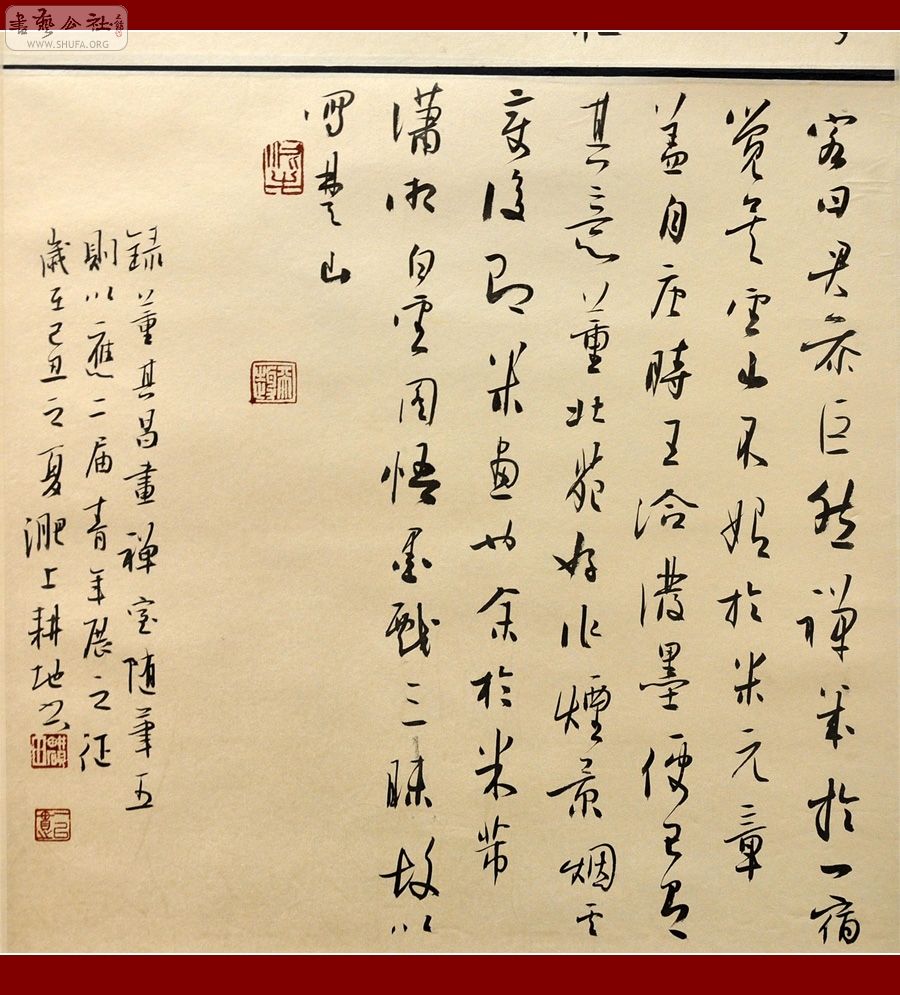 書藝公社
WWW.SHUFA.ORG
客曰君参巨然禅幾於一宿
覺矣雲山不始於米元章
蓋自唐時王洽潑墨便已有
其意董北苑好作煙景烟云
變没即米畫也余於米芾
瀟湘白雲圖悟墨戲三昧故以
寫楚山
録董其昌畫禅室随筆五
則以應二届青年展之征
歲在己丑之夏淝上耕地書